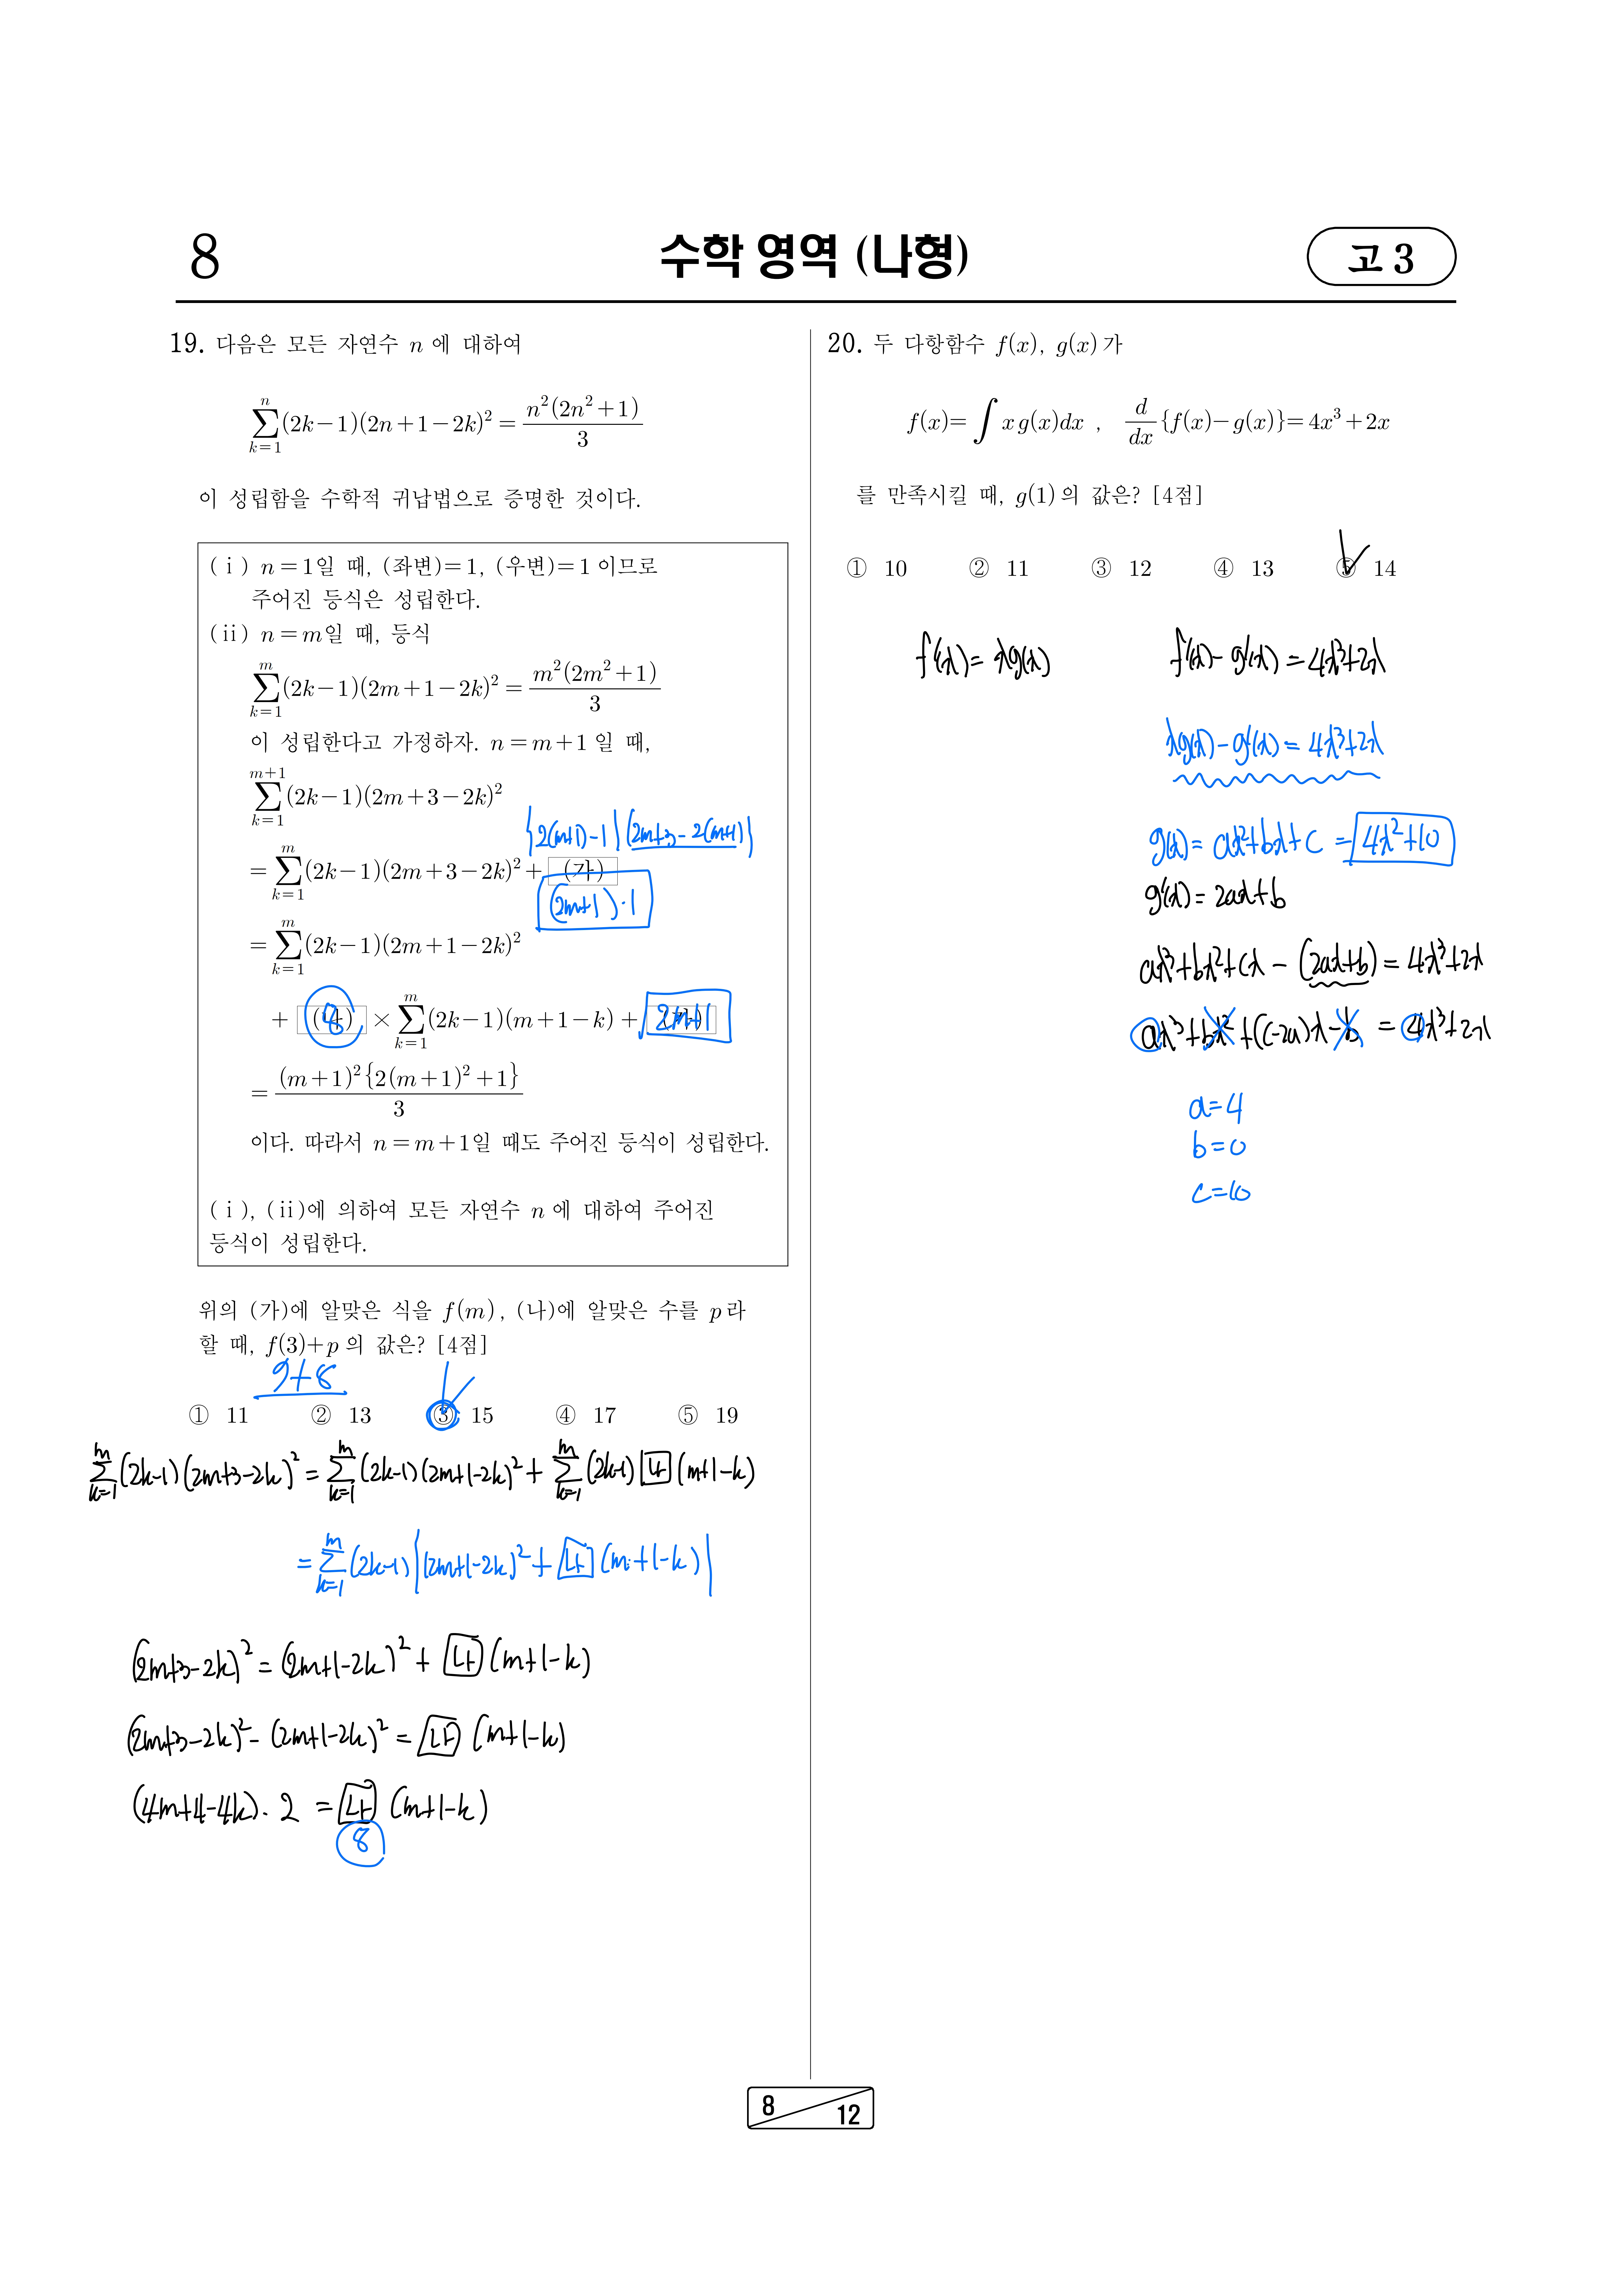 8
수학 영역 (나형)
고 3
19. 다음은 모든 자연수 n 에 대하여
\sum_{k=1}^{n}(2k-1)(2n+1-2k)^2 = \frac{n^2(2n^2+1)}{3}
이 성립함을 수학적 귀납법으로 증명한 것이다.
(ⅰ) n=1일 때, (좌변)=1, (우변)=1 이므로
주어진 등식은 성립한다.
(ⅱ) n=m일 때, 등식
\sum_{k=1}^{m}(2k-1)(2m+1-2k)^2 = \frac{m^2(2m^2+1)}{3}
이 성립한다고 가정하자. n=m+1 일 때,
\sum_{k=1}^{m+1}(2k-1)(2m+3-2k)^2
{2(m+1)-1}{2m+3-2(m+1)}
=\sum_{k=1}^{m}(2k-1)(2m+3-2k)^2 + (가)
(2m+1)·1
=\sum_{k=1}^{m}(2k-1)(2m+1-2k)^2
+ (나) 8 × \sum_{k=1}^{m}(2k-1)(m+1-k) + (가) 2m+1
= \frac{(m+1)^2{2(m+1)^2+1}}{3}
이다. 따라서 n=m+1일 때도 주어진 등식이 성립한다.
(ⅰ), (ⅱ)에 의하여 모든 자연수 n 에 대하여 주어진
등식이 성립한다.
위의 (가)에 알맞은 식을 f(m), (나)에 알맞은 수를 p 라
할 때, f(3)+p 의 값은? [4점]
9+8
① 11 ② 13 ③ 15 ④ 17 ⑤ 19
\sum_{k=1}^{m}(2k-1)(2m+3-2k)^2 = \sum_{k=1}^{m}(2k-1)(2m+1-2k)^2 + \sum_{k=1}^{m}(2k-1) 나 (m+1-k)
= \sum_{k=1}^{m}(2k-1){(2m+1-2k)^2 + 나 (m+1-k)}
(2m+3-2k)^2 = (2m+1-2k)^2 + 나 (m+1-k)
(2m+3-2k)^2 - (2m+1-2k)^2 = 나 (m+1-k)
(4m+4-4k)·2 = 나 (m+1-k)
8
20. 두 다항함수 f(x), g(x)가
f(x)=∫xg(x)dx , \frac{d}{dx}{f(x)-g(x)}=4x^3+2x
를 만족시킬 때, g(1)의 값은? [4점]
① 10 ② 11 ③ 12 ④ 13 ⑤ 14
f'(x)=xg(x) f'(x)-g'(x)=4x^3+2x
xg(x)-g'(x)=4x^3+2x
g(x)=ax^2+bx+c=4x^2+10
g'(x)=2ax+b
ax^3+bx^2+cx-(2ax+b)=4x^3+2x
ax^3+bx^2+(c-2a)x-b=4x^3+2x
a=4
b=0
c=10
8
12